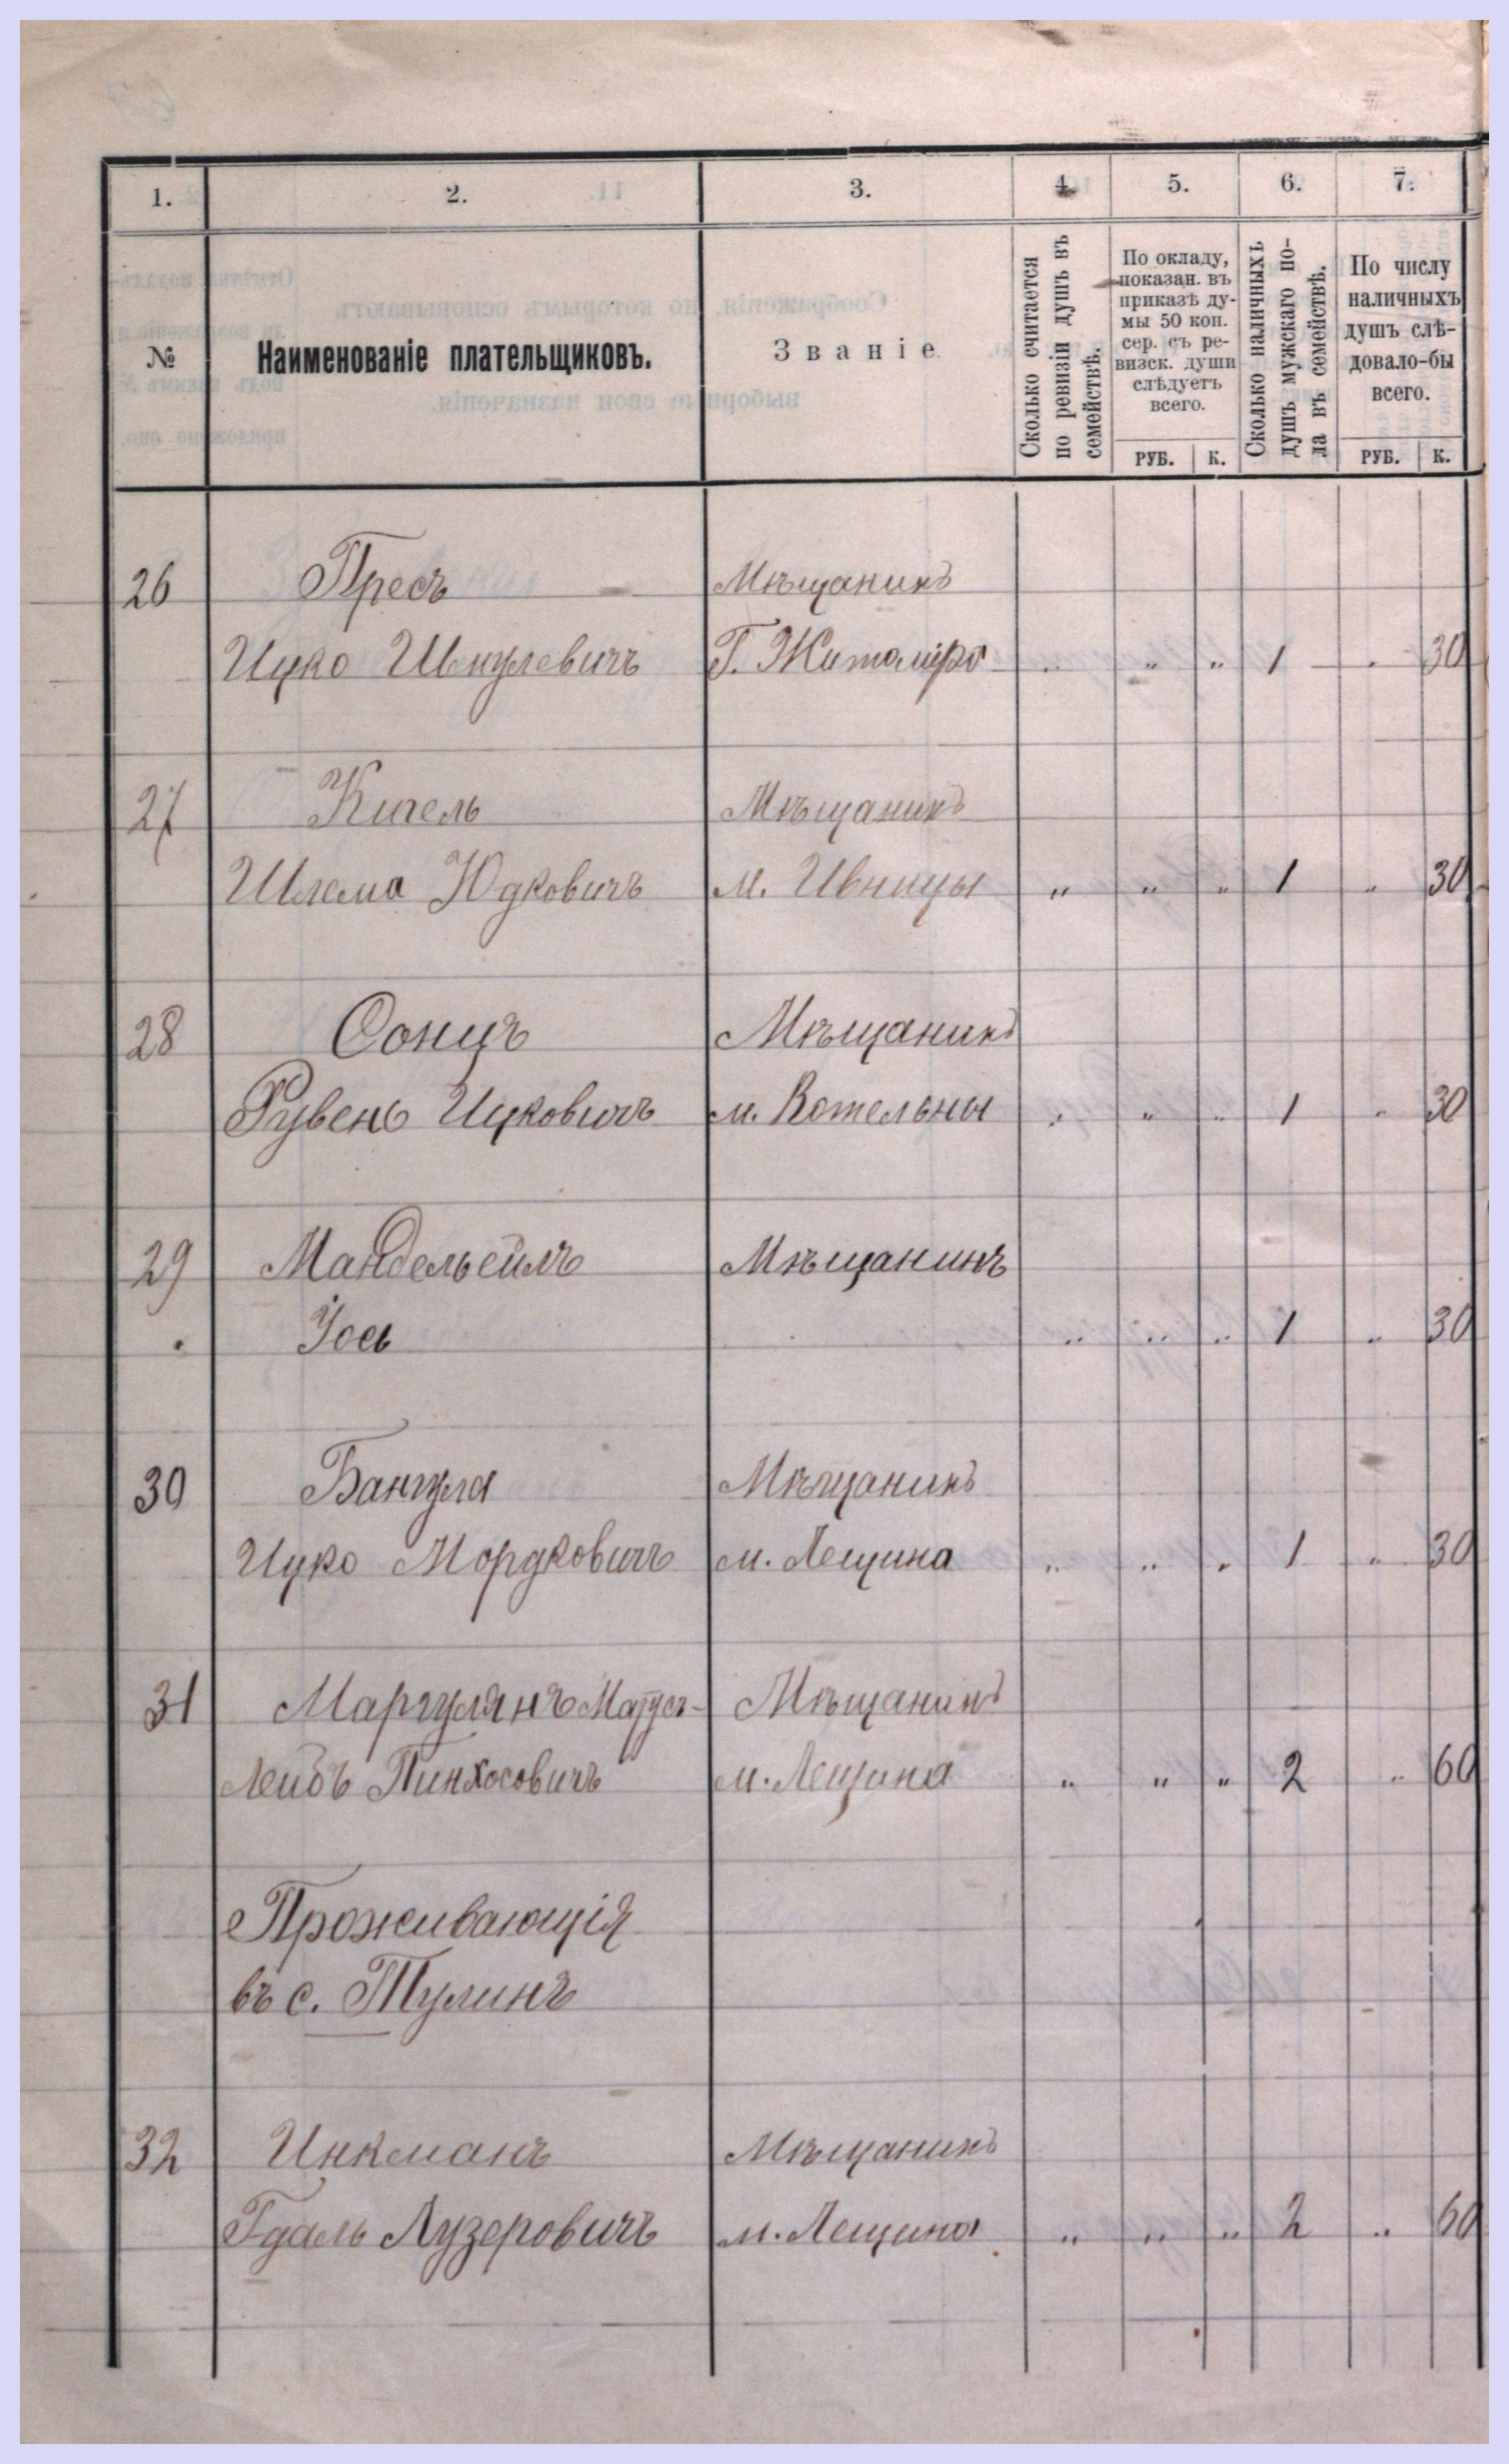 1. 2. 3. 4. 5. 6. 7.
№
Наименованіе плательщиковъ.
Званіе
Сколько считается
по ревизіи душъ въ
семействѣ.
По окладу,
показан. въ
приказѣ ду-
мы 50 коп.
сер. съ ре-
визск. души
слѣдуетъ
всего.
РУБ. К.
Сколько наличныхъ
душъ мужскаго по-
ла въ семействѣ.
По числу
наличныхъ
душъ слѣ-
довало-бы
всего.
РУБ. К.
26 Пресъ Мѣщанинъ
Ицко Шмулевичъ Г. Житоміра „ „ „ 1 „ 30
27 Кигель Мѣщанинъ
Шлема Юдковичъ м. Ивницы „ „ „ 1 „ 30
28 Сонцъ Мѣщанинъ
Рувень Ицковичъ м. Котельны „ „ „ 1 „ 30
29 Мандельейлъ Мѣщанинъ
Іось „ „ „ 1 „ 30
30 Бангула Мѣщанинъ
Ицко Мордковичъ м. Лещина „ „ „ 1 „ 30
31 Маргулянъ Матусъ- Мѣщанинъ
Лейбъ Пинхосовичъ м. Лещина „ „ „ 2 „ 60
Проживающія
въ с. Тулинѣ
32 Инкманъ Мѣщанинъ
Гдаль Лузеровичъ м. Лещина „ „ „ 2 „ 60